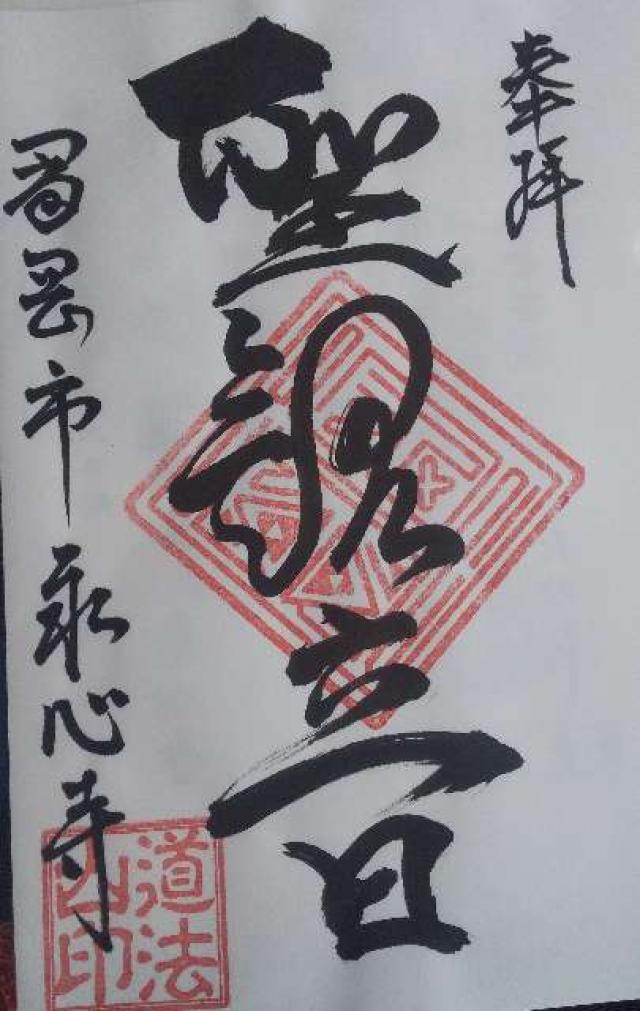 奉拝
聖観音
富岡市 永心寺
道法
山印